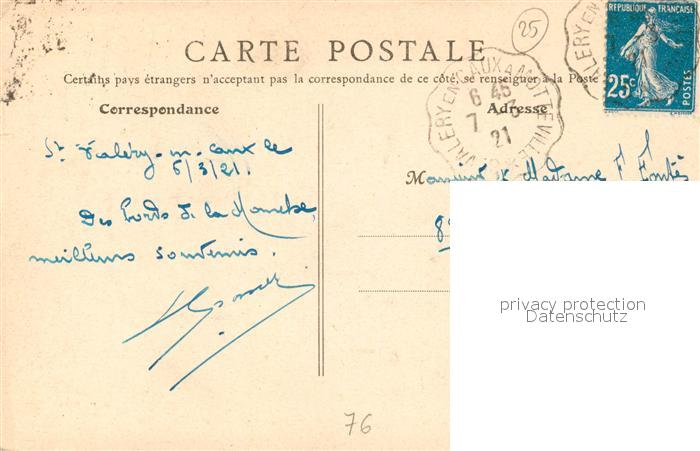 25
RÉPUBLIQUE FRANÇAISE
25c
POSTES
CARTE POSTALE
Certains pays étrangers n'acceptant pas la correspondance de ce côté, se renseigner à la Poste
Correspondance
Adresse
VALERY EN CAUX A MOTTEVILLE
6 45
7 3
21
VALERY EN
St Valéry-en-Caux le
6/3/21.
Des bords de la Manche,
meilleurs souvenirs.
Monsieur & Madame F.
privacy protection
Datenschutz
76